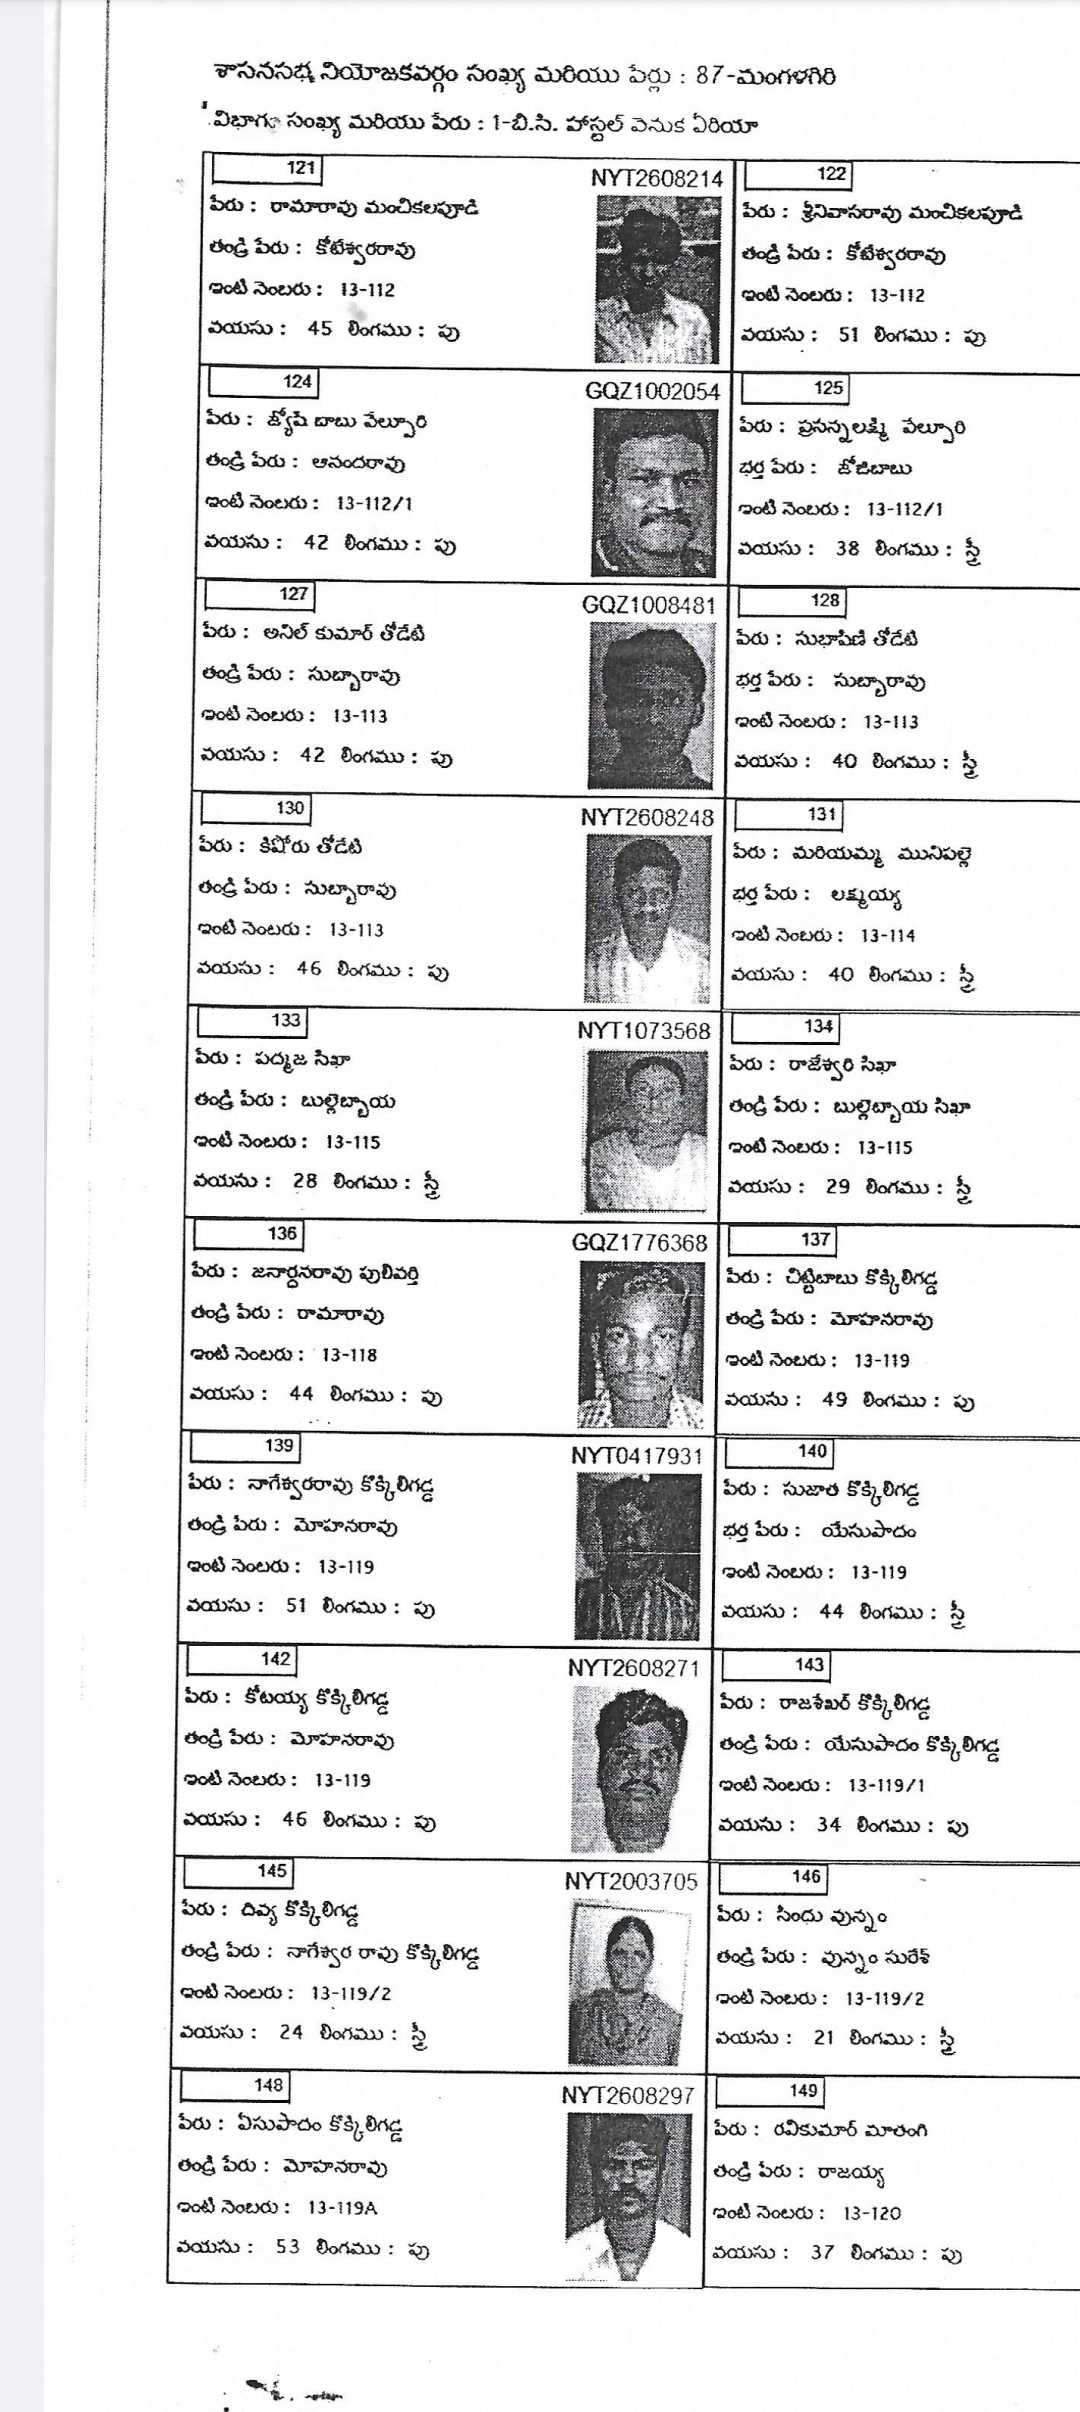 శాసనసభ నియోజకవర్గం సంఖ్య మరియు పేర్లు : 87-మంగళగిరి
విభాగం సంఖ్య మరియు పేరు : 1-బి.సి. హాస్టల్ వెనుక ఏరియా
121
NYT2608214
పేరు : రామారావు మంచికలపూడి
తండ్రి పేరు : కోటేశ్వరరావు
ఇంటి నెంబరు : 13-112
వయసు : 45 లింగము : పు
122
పేరు : శ్రీనివాసరావు మంచికలపూడి
తండ్రి పేరు : కోటేశ్వరరావు
ఇంటి నెంబరు : 13-112
వయసు : 51 లింగము : పు
124
GQZ1002054
పేరు : జ్యోషి బాబు వేల్పూరి
తండ్రి పేరు : ఆనందరావు
ఇంటి నెంబరు : 13-112/1
వయసు : 42 లింగము : పు
125
పేరు : ప్రసన్నలక్ష్మి వేల్పూరి
భర్త పేరు : జోజిబాబు
ఇంటి నెంబరు : 13-112/1
వయసు : 38 లింగము : స్త్రీ
127
GQZ1008481
పేరు : అనిల్ కుమార్ తోడేటి
తండ్రి పేరు : సుబ్బారావు
ఇంటి నెంబరు : 13-113
వయసు : 42 లింగము : పు
128
పేరు : సుభాషిణి తోడేటి
భర్త పేరు : సుబ్బారావు
ఇంటి నెంబరు : 13-113
వయసు : 40 లింగము : స్త్రీ
130
NYT2608248
పేరు : కిషోరు తోడేటి
తండ్రి పేరు : సుబ్బారావు
ఇంటి నెంబరు : 13-113
వయసు : 46 లింగము : పు
131
పేరు : మరియమ్మ మునిపల్లె
భర్త పేరు : లక్ష్మయ్య
ఇంటి నెంబరు : 13-114
వయసు : 40 లింగము : స్త్రీ
133
NYT1073568
పేరు : పద్మజ సిఖా
తండ్రి పేరు : బుల్లెబ్బాయ
ఇంటి నెంబరు : 13-115
వయసు : 28 లింగము : స్త్రీ
134
పేరు : రాజేశ్వరి సిఖా
తండ్రి పేరు : బుల్లెబ్బాయ సిఖా
ఇంటి నెంబరు : 13-115
వయసు : 29 లింగము : స్త్రీ
136
GQZ1776368
పేరు : జనార్ధనరావు పులివర్తి
తండ్రి పేరు : రామారావు
ఇంటి నెంబరు : 13-118
వయసు : 44 లింగము : పు
137
పేరు : చిట్టిబాబు కొక్కిలిగడ్డ
తండ్రి పేరు : మోహనరావు
ఇంటి నెంబరు : 13-119
వయసు : 49 లింగము : పు
139
NYT0417931
పేరు : నాగేశ్వరరావు కొక్కిలిగడ్డ
తండ్రి పేరు : మోహనరావు
ఇంటి నెంబరు : 13-119
వయసు : 51 లింగము : పు
140
పేరు : సుజాత కొక్కిలిగడ్డ
భర్త పేరు : యేసుపాదం
ఇంటి నెంబరు : 13-119
వయసు : 44 లింగము : స్త్రీ
142
NYT2608271
పేరు : కోటయ్య కొక్కిలిగడ్డ
తండ్రి పేరు : మోహనరావు
ఇంటి నెంబరు : 13-119
వయసు : 46 లింగము : పు
143
పేరు : రాజశేఖర్ కొక్కిలిగడ్డ
తండ్రి పేరు : యేసుపాదం కొక్కిలిగడ్డ
ఇంటి నెంబరు : 13-119/1
వయసు : 34 లింగము : పు
145
NYT2003705
పేరు : దివ్య కొక్కిలిగడ్డ
తండ్రి పేరు : నాగేశ్వర రావు కొక్కిలిగడ్డ
ఇంటి నెంబరు : 13-119/2
వయసు : 24 లింగము : స్త్రీ
146
పేరు : సింధు వున్నం
తండ్రి పేరు : వున్నం సురేశ్
ఇంటి నెంబరు : 13-119/2
వయసు : 21 లింగము : స్త్రీ
148
NYT2608297
పేరు : ఏసుపాదం కొక్కిలిగడ్డ
తండ్రి పేరు : మోహనరావు
ఇంటి నెంబరు : 13-119A
వయసు : 53 లింగము : పు
149
పేరు : రవికుమార్ మాతంగి
తండ్రి పేరు : రాజయ్య
ఇంటి నెంబరు : 13-120
వయసు : 37 లింగము : పు